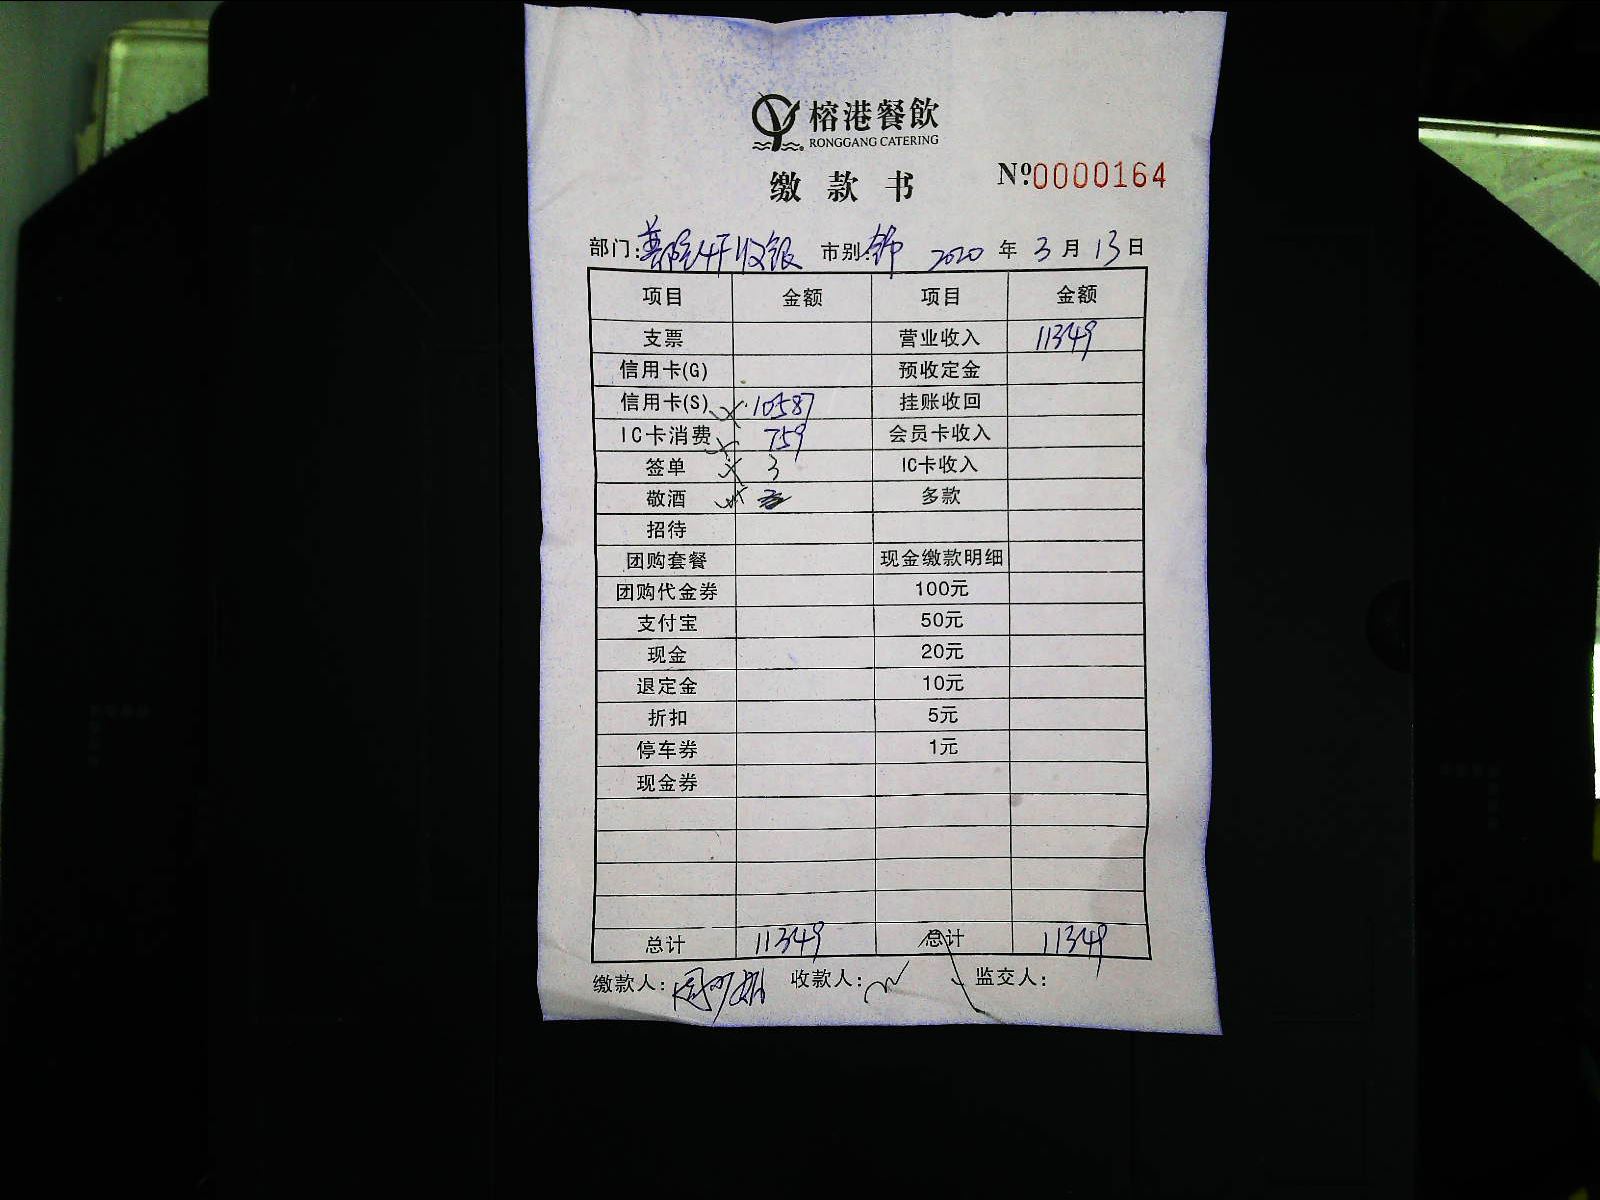 榕港餐飲
RONGGANG CATERING
缴款书 №0000164
部门: 收银 市别: 2020 年 3 月 13 日
项目 金额 项目 金额
支票 营业收入 11349
信用卡(G) 预收定金
信用卡(S) 10587 挂账收回
IC卡消费 759 会员卡收入
签单 3 IC卡收入
敬酒 多款
招待
团购套餐 现金缴款明细
团购代金券 100元
支付宝 50元
现金 20元
退定金 10元
折扣 5元
停车券 1元
现金券
总计 11349 总计 11349
缴款人: 收款人: 监交人: